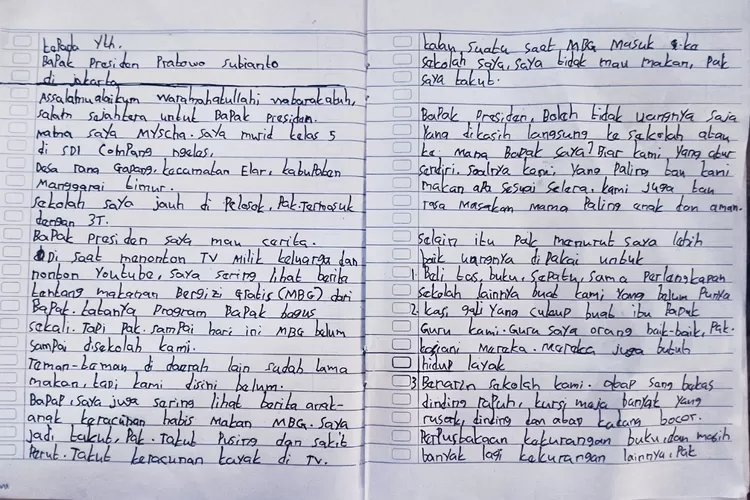 kepada Yth.
Bapak Presiden Prabowo Subianto
di jakarta
Assalamualaikum warahmahatullahi wabarakatuh,
salam sejahtera untuk Bapak presiden.
nama saya Myscha. Saya murid kelas 5
di SDI Compang ngeles,
Desa rana Gapang, kecamatan Elar, kabupaten
Manggarai timur.
sekolah saya jauh di Pelosok, Pak. Termasuk
dengan 3T.
Bapak Presiden saya mau cerita.
Di saat menonton TV milik keluarga dan
nonton Youtube, saya sering lihat berita
tentang makanan Bergizi Gratis (MBG) dari
Bapak. katanya Program Bapak bagus
sekali. Tapi Pak. sampai hari ini MBG belum
sampai disekolah kami.
Teman-teman di daerah lain sudah lama
makan, tapi kami disini belum.
Bapap, saya juga sering lihat berita anak-
anak keracunan habis Makan MBG. saya
jadi takut, Pak. Takut Pusing dan sakit
Perut. Takut keracunan kayak di TV.
kalau suatu saat MBG Masuk ke
sekolah saya, saya tidak mau makan, Pak
saya takut.
Bapak Presiden, Boleh tidak uangnya saja
Yang dikasih langsung ke sekolah atau
ke mama Bapak saya? Biar kami yang atur
sendiri. soalnya kami yang Paling tau kami
makan apa sesuai selera. kami juga tau
rasa masakan mama Paling enak dan aman.
selain itu Pak menurut saya lebih
baik uangnya di Pakai untuk
1. Beli tas, buku, sepatu, sama Perlengkapan
sekolah lainnya buat kami Yang belum Punya
2. kas, gaji Yang cukup buat ibu Bapak
Guru kami. Guru saya orang baik-baik, Pak.
kasiani Mereka. Mereka juga butuh
hidup layak
3 Benarin sekolah kami. atap sang bekas
dinding rapuh, kursi meja banyak yang
rusak, dinding dan atap kadang bocor.
Perpustakaan kekurangan buku, dan masih
banyak lagi kekurangan lainnya, Pak